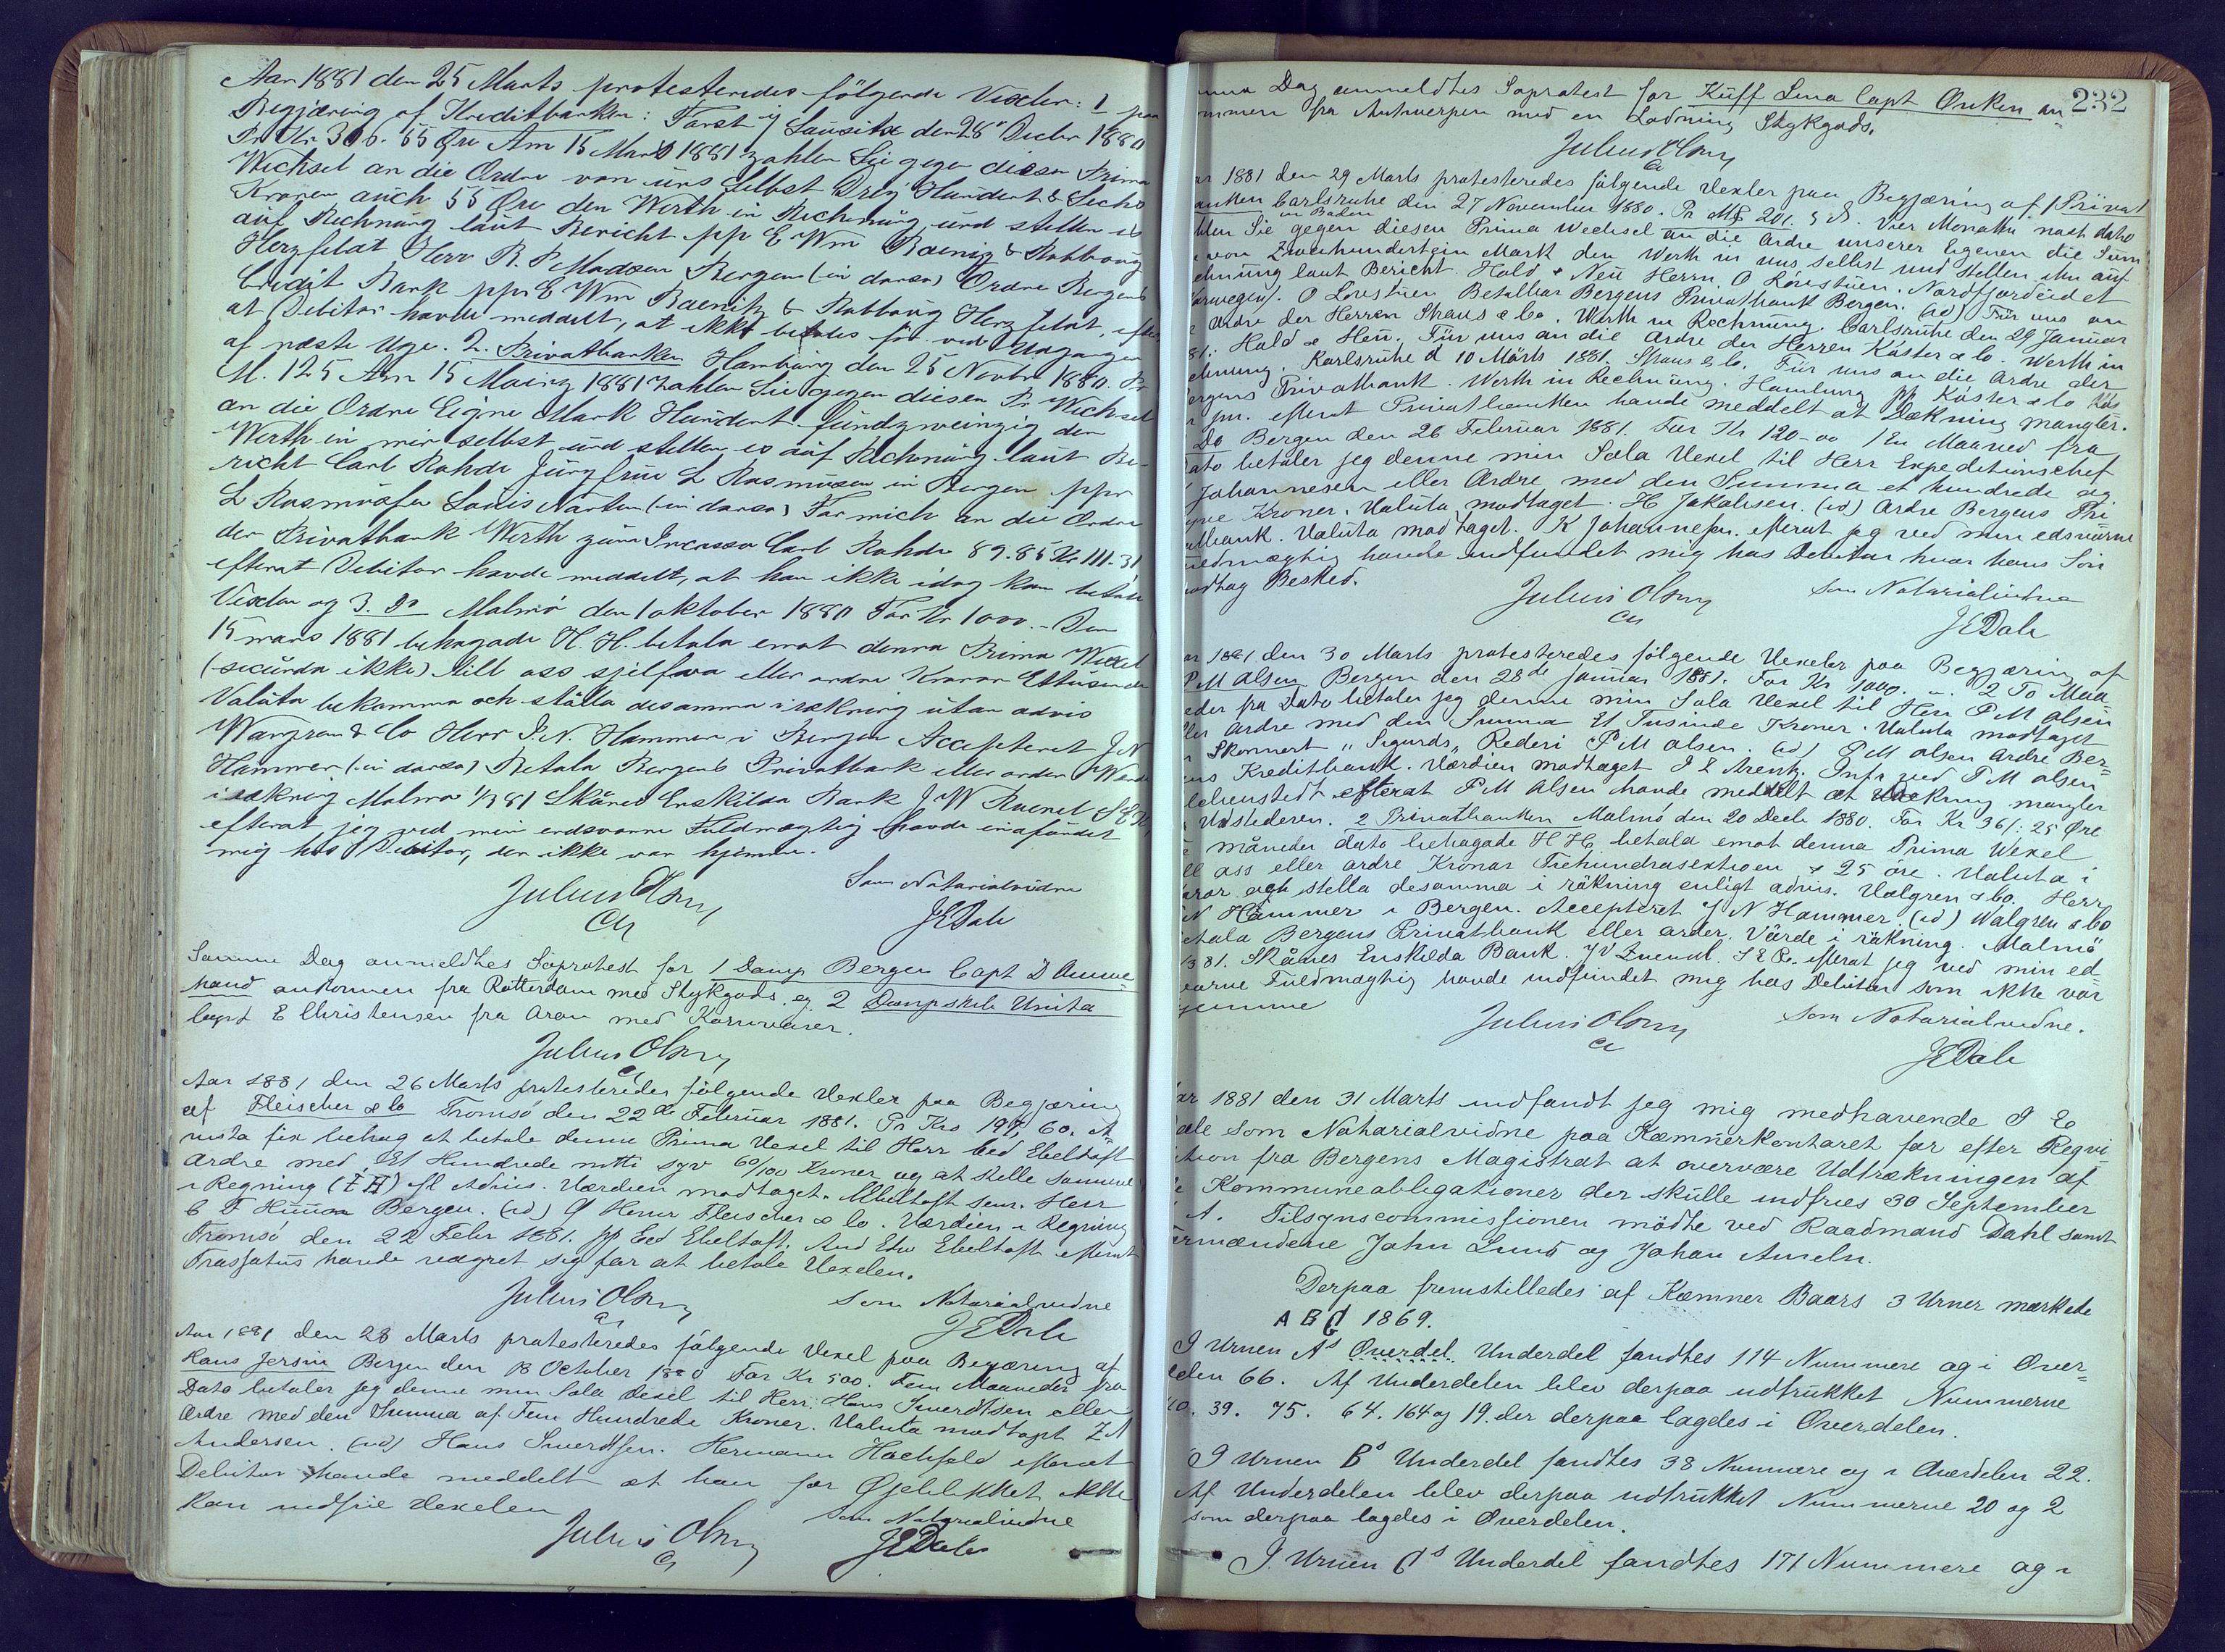 Aar 1881 den 25 Marts protesteredes følgende Vexler: 1 paa
Begjæring af Kreditbanken: Forst i/ Lausitz den 28' Decbr 1880
Pr Kr 306. 55 Øre Am 15 März 1881 zahlen Sie gegen diesen Prima
Wechsel an die Ordre von uns selbst Drei Hundert & Sechs
Kronen auch 55 Øre den Werth in Rechnung und stellen es
auf Rechnung laut Bericht pp E Wm Raenitz & Rabbow
Herzfeldt Herr R. P. Madsen Bergen (in dorso) Ordre Bergens
Credit Bank ppr E Wm Raenitz & Herzfeldt, efter
at Debitor havde meddelt, at ikke betales før ved Udgangen
af næste Uge. 2. Privatbanken Hamburg den 25 Novbr 1880. Pr
M. 125 Am 15 1881 zahlen Sie gegen diesen Pr Wechsel
an die Ordre Eigne Mark Hundert den
Werth in mir selbst und stellen es auf Rechnung laut Be-
richt Carl Rohde Jungfrue L Rasmusen in Bergen ppr
L Rasmussen Louis (in dorso) For mich an die Ordre
der Privatbank Werth zum Incasso Carl Rohde 89.85 Kr 111-31
efterat Debitor havde meddelt, at han ikke idag kan betale
Vexlen og 3. Do Malmö den 1 oktober 1880 För Kr 1000.- Den
15 mars 1881 behagade H. H. betala emot denna Prima Wexel
(secunda ikke) till oss sjelfva eller ordre Kronor Ettusende
Valuta bekomma och ställa desamma i räkning utan advis
& Co Herr J. N. Hammer i Bergen Accepteret J N
Hammer (in dorso) Betala Bergens Privatbank eller order Värde
i räkning Malmö 1/3 81 Skånes Enskilda Bank
efterat jeg ved min edsvorne Fuldmægtig havde indfundet
mig hos Debitor, der ikke var hjemme.
Julius Olsen
Som Notarialvidne
J E Dale
Samme Dag anmeldtes Søprotest for 1 Damp Bergen Capt D
ankommen fra Rotterdam med Stykgods. og 2 Dampskib Unita
Capt E Christensen fra Aran med Kornvarer.
Julius Olsen
Aar 1881 den 26 Marts protesteredes følgende Vexler paa Begjæring
af Fleischer & Co Tromsø den 22de Februar 1881. Pr Krs 197, 60. A
vista fix behag at betale denne Prima Vexel til Herr Eed Ebeltoft
Ordre med Et Hundrede nitti syv 60/100 Kroner og at stille samme
i Regning fl Advis. Værdien modtaget. Ebeltoft senr. Herr
C F Bergen. (id) O Herrer Fleischer & Co. Værdien i Regning
Tromsø den 22 Febr 1881. pp Eed Ebeltoft. And Ebeltoft efterat
Trassatus havde vægret sig for at betale Vexelen.
Julius Olsen
Som Notarialvidne
J E Dale
Aar 1881 den 28 Marts protesteredes følgende Vexel paa Begjæring af
Hans Jersin Bergen den 13 October 1880 For Kr 500. Fem Maaneder fra
Dato betaler jeg denne min Sola Vexel til Herr. Hans Sivertsen eller
Ordre med den Summa af Fem Hundrede Kroner. Valuta modtaget
Andersen. (id) Hans Sivertsen. Hermann efterat
Debitor havde meddelt at han for Øjeblikket ikke
kan indfrie Vexelen
Julius Olsen
Som Notarialvidne
J E Dale
232
Dag anmeldtes Søprotest for Kuff Lina Capt Onken an
fra Antwerpen med en Ladning Stykgods.
Julius Olsen
1881 den 29 Marts protesteredes følgende Vexler paa Begjæring af 1 Privat
Carlsruhe den 27 November 1880. Pr Mk 201. Vier Monathe nach dato
in Baden
Sie gegen diesen Prima Wechsel an die Ordre unserer Eigenen die Sum
von Zweihundertein Mark den Werth in uns selbst und stellen ihn auf
laut Bericht. Hold & Neu Herrn O Nordfjordeidet
O Betalbar Bergens Privatbank Bergen. (id) Für uns an
Ordre der Herren Straus & Co. Werth in Rechnung. Carlsruhe den 29 Januar
81: Hold & Neu. Für uns an die Ordre der Herren Köster & Co. Werth in
Karlsruhe d 10 März 1881. Straus & Co. Für uns an die Ordre der
Privatbank. Werth in Rechnung. Hamburg pp Köster & Co
efterat Privatbanken havde meddelt at Dækning mangler.
Do Bergen den 26 Februar 1881. For Kr 120-00 1 En Maaned fra
Dato betaler jeg denne min Sola Vexel til Herr Expeditionschef
Johannesen eller Ordre med den Summa et hundrede og
Kroner. Valuta modtaget. H Jakobsen. (id) Ordre Bergens Pri
Valuta modtaget. K Johannesen. efterat jeg ved min edsvorne
havde indfundet mig hos Debitor hvor hans Søn
modtog Besked.
Julius Olsen
Som Notarialvidne
J E Dale
1881 den 30 Marts protesteredes følgende Vexler paa Begjæring af
P M Olsen Bergen den 28de Januar 1881. For Kr 1000. 2 To Maa-
fra Dato betaler jeg denne min Sola Vexel til Herr P M Olsen
Ordre med den Summa Et Tusinde Kroner. Valuta modtaget
Skonnert „Sigurds„ Rederi P M Olsen. (id) P M Olsen Ordre Ber-
Kreditbank. Værdien modtaget J E ved P M Olsen
efterat P M Olsen havde meddelt at Dækning mangler
Udstederen. 2 Privatbanken Malmö den 20 Decbr 1880. For Kr 361: 25 Øre
måneder dato behagade H H betala emot denna Prima Wexel
oss eller ordre Kronor Trehundrasextioen & 25 öre. Valuta i
och stella desamma i räkning enligt advis. Walgren & Co. Herr
Hammer i Bergen. Accepteret J N Hammer. (id) Walgren & Co
Bergens Privatbank eller order. Värde i räkning. Malmö
81. Skånes Enskilda Bank. efterat jeg ved min ed
Fuldmægtig havde indfundet mig hos Debitor som ikke var
hjemme
Julius Olsen
Som Notarialvidne.
J E Dale
1881 den 31 Marts indfandt jeg mig medhavende J E
Dale som Notarialvidne paa Kæmnerkontoret for efter Reqvi-
sition fra Bergens Magistrat at overvære Udtrækningen af
Kommuneobligationer der skulle indfries 30 September
A. Tilsynscommissionen mödte ved Raadmand Dahl samt
Formændene John Lund og Johan Ameln.
Derpaa fremstilledes af Kæmner Baars 3 Urner mærkede
A B C 1869.
I Urnen As Overdel Underdel fandtes 114 Nummere og i Over-
delen 66. Af Underdelen blev derpaa udtrukket Nummerne
39. 75. 64. 164 og 19. der derpaa lagdes i Overdelen.
I Urnen Bs Underdel fandtes 38 Nummere og i Overdelen 22.
Af Underdelen blev derpaa udtrukket Nummerne 20 og 2
som derpaa lagdes i Overdelen.
I Urnen Cs Underdel fandtes 171 Nummere og i